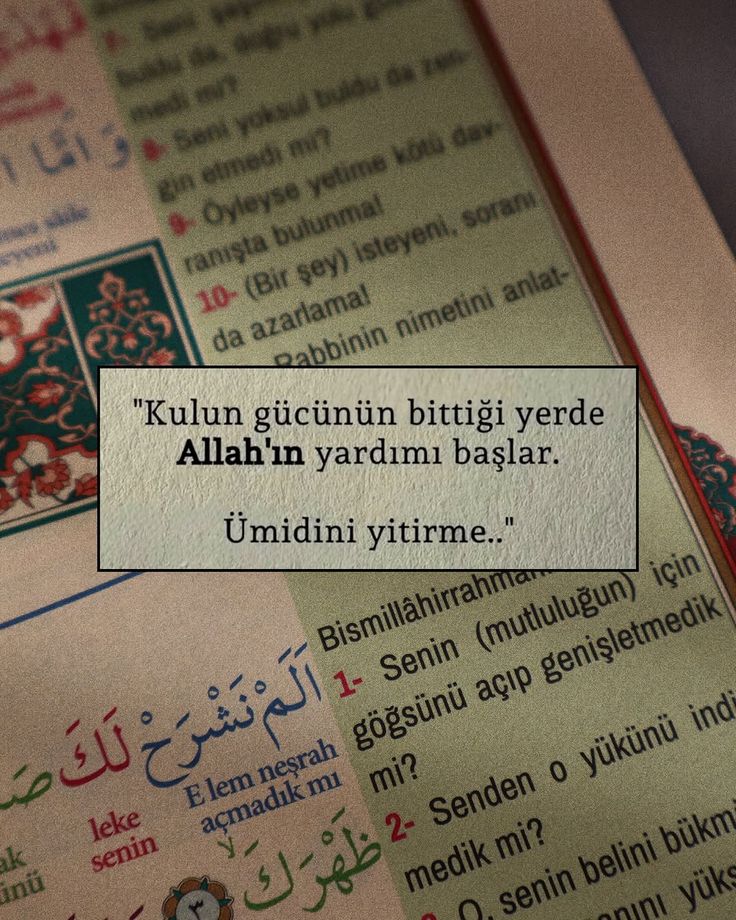 medi mi?
8- Seni yoksul buldu da zen-
gin etmedi mi?
9- Öyleyse yetime kötü dav-
ranışta bulunma!
10- (Bir şey) isteyeni, soranı
da azarlama!
Rabbinin nimetini anlat-
"Kulun gücünün bittiği yerde
Allah'ın yardımı başlar.
Ümidini yitirme.."
Bismillâhirrahman
1- Senin (mutluluğun) için
göğsünü açıp genişletmedik
mi?
2- Senden o yükünü indi
medik mi?
O, senin belini bükmi
اَلَمْ نَشْرَحْ لَكَ
E lem neşrah
leke
açmadık mı
senin
ظَهْرَكَ
٣